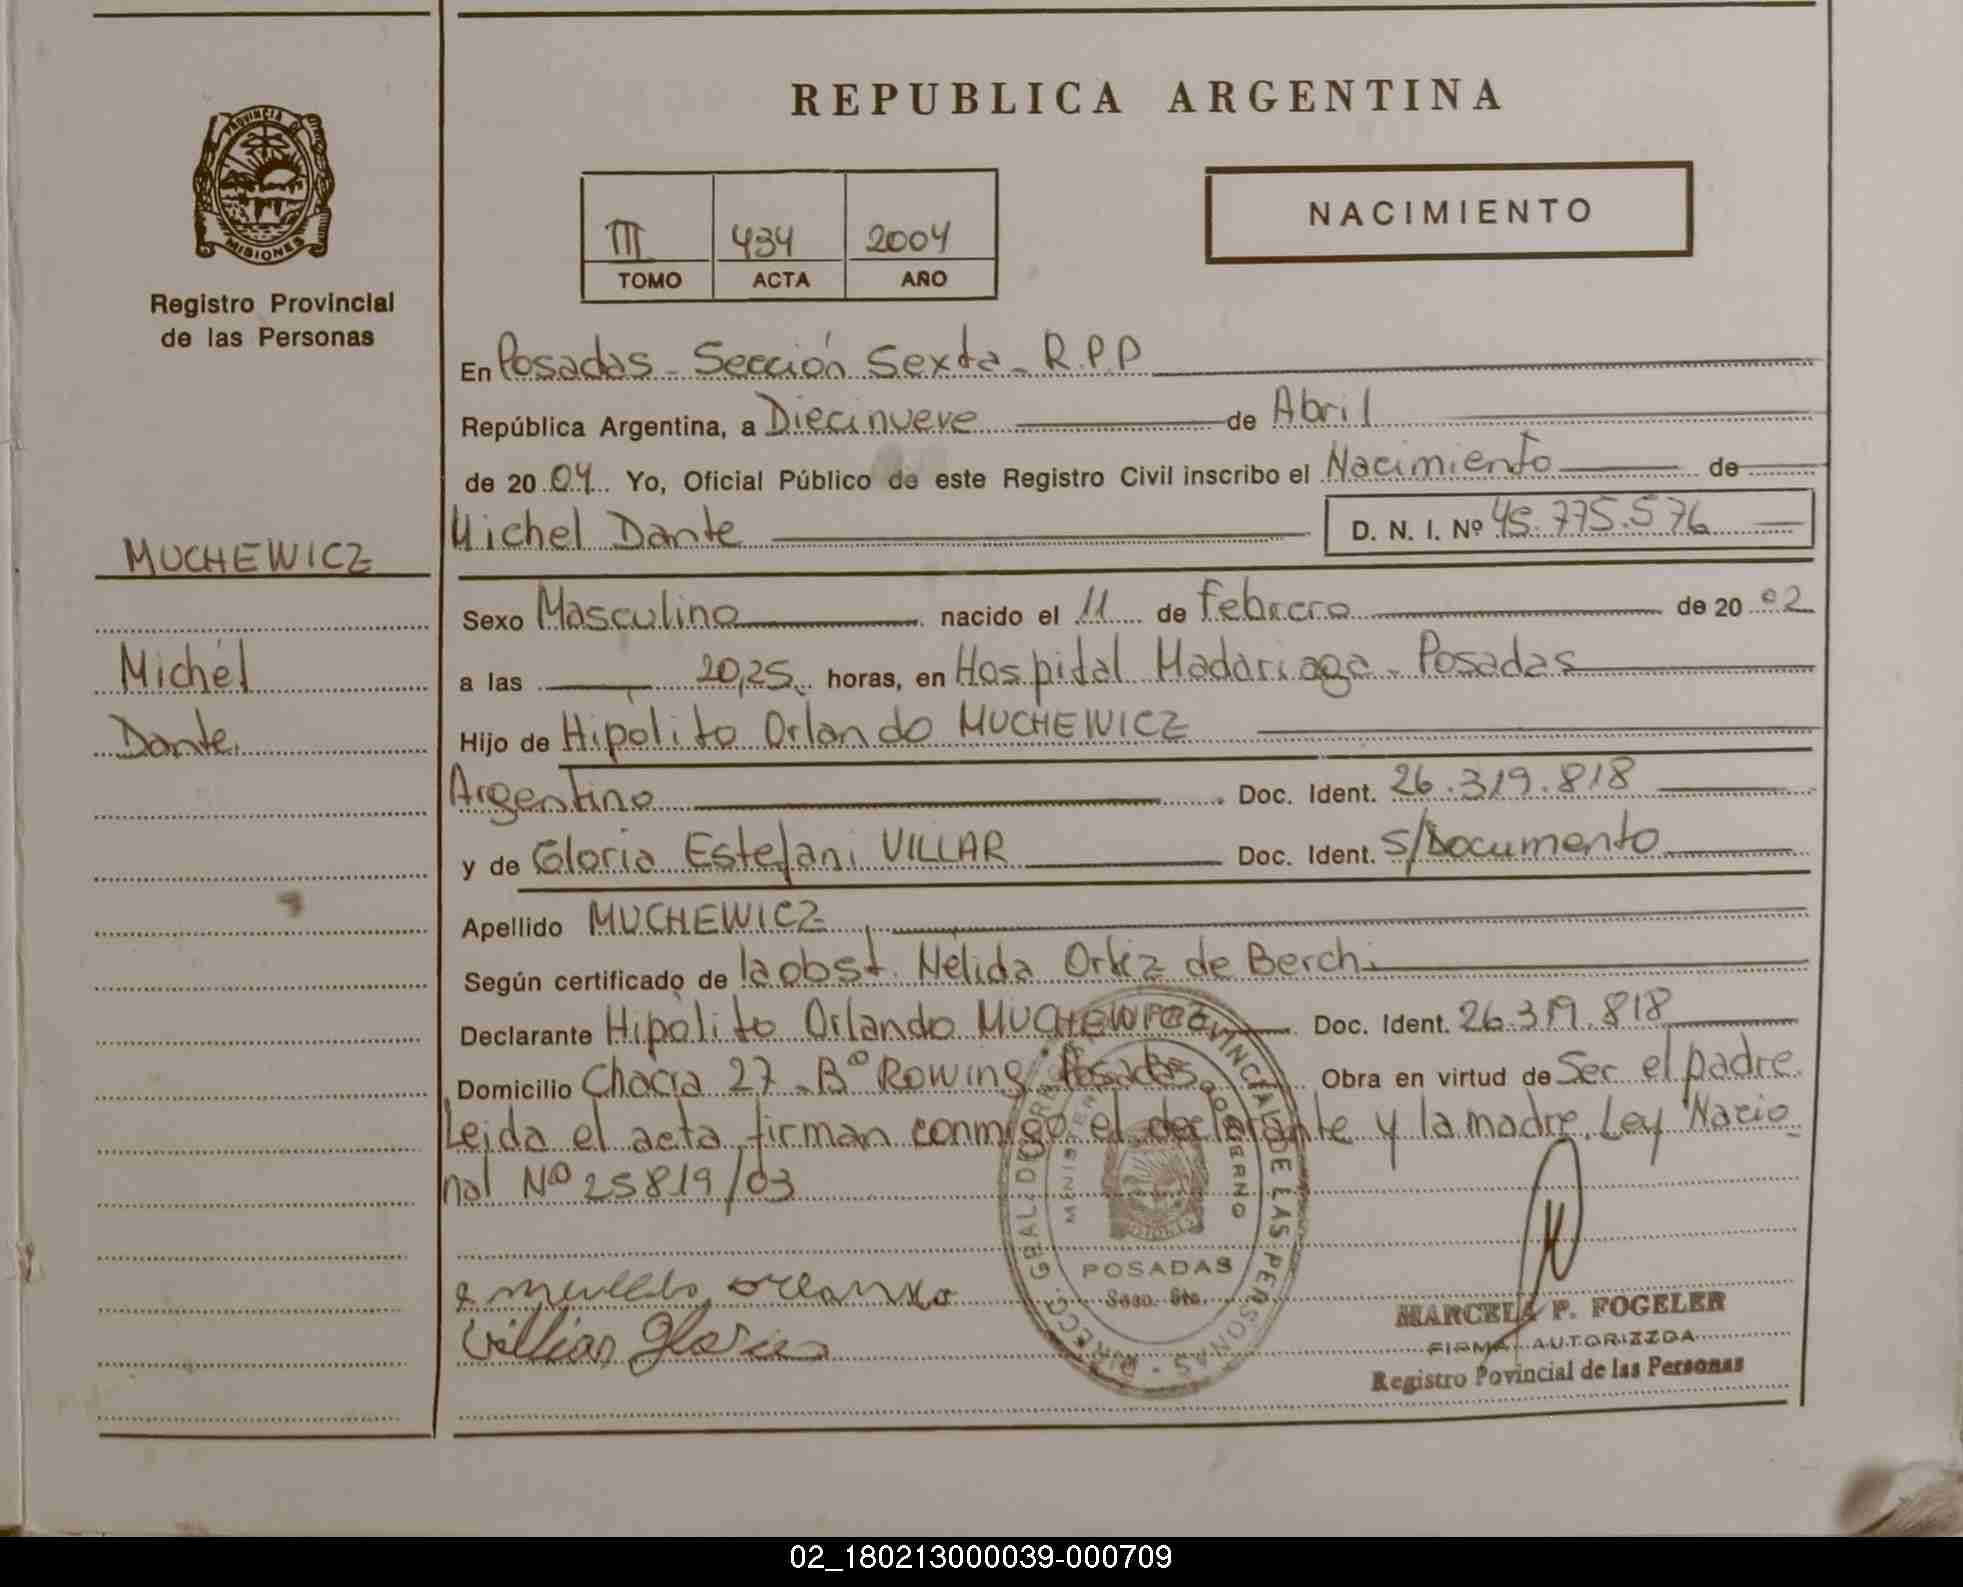 REPUBLICA ARGENTINA
PROVINCIA DE
MISIONES
Registro Provincial
de las Personas
NACIMIENTO
III 434 2004
TOMO ACTA AÑO
En Posadas - Sección Sexta - R.P.P
República Argentina, a Diecinueve de Abril
de 2004 Yo, Oficial Público de este Registro Civil inscribo el Nacimiento de
Michel Dante D. N. I. Nº 45.775.576
MUCHEWICZ
Michel
Dante
Sexo Masculino nacido el 11 de Febrero de 20 02
a las 20,25 horas, en Hospital Madariaga - Posadas
Hijo de Hipólito Orlando MUCHEWICZ
Argentino Doc. Ident. 26.319.818
y de Gloria Estefani VILLAR Doc. Ident. S/Documento
Apellido MUCHEWICZ
Según certificado de la obst. Nélida Ortiz de Berchi
Declarante Hipólito Orlando MUCHEWICZ Doc. Ident. 26.319.818
Domicilio Chacra 27 - Bº Rowing Posadas Obra en virtud de Ser el padre.
Leida el acta firman conmigo el declarante y la madre. Ley Nacio-
nal Nº 25819/03
DIRECC. GRAL. DEL REG. PROVINCIAL DE LAS PERSONAS
MINISTERIO GOBIERNO
POSADAS
Secc. 6ta.
MARCELA P. FOGELER
FIRMA AUTORIZZDA
Registro Povincial de las Personas
02_180213000039-000709